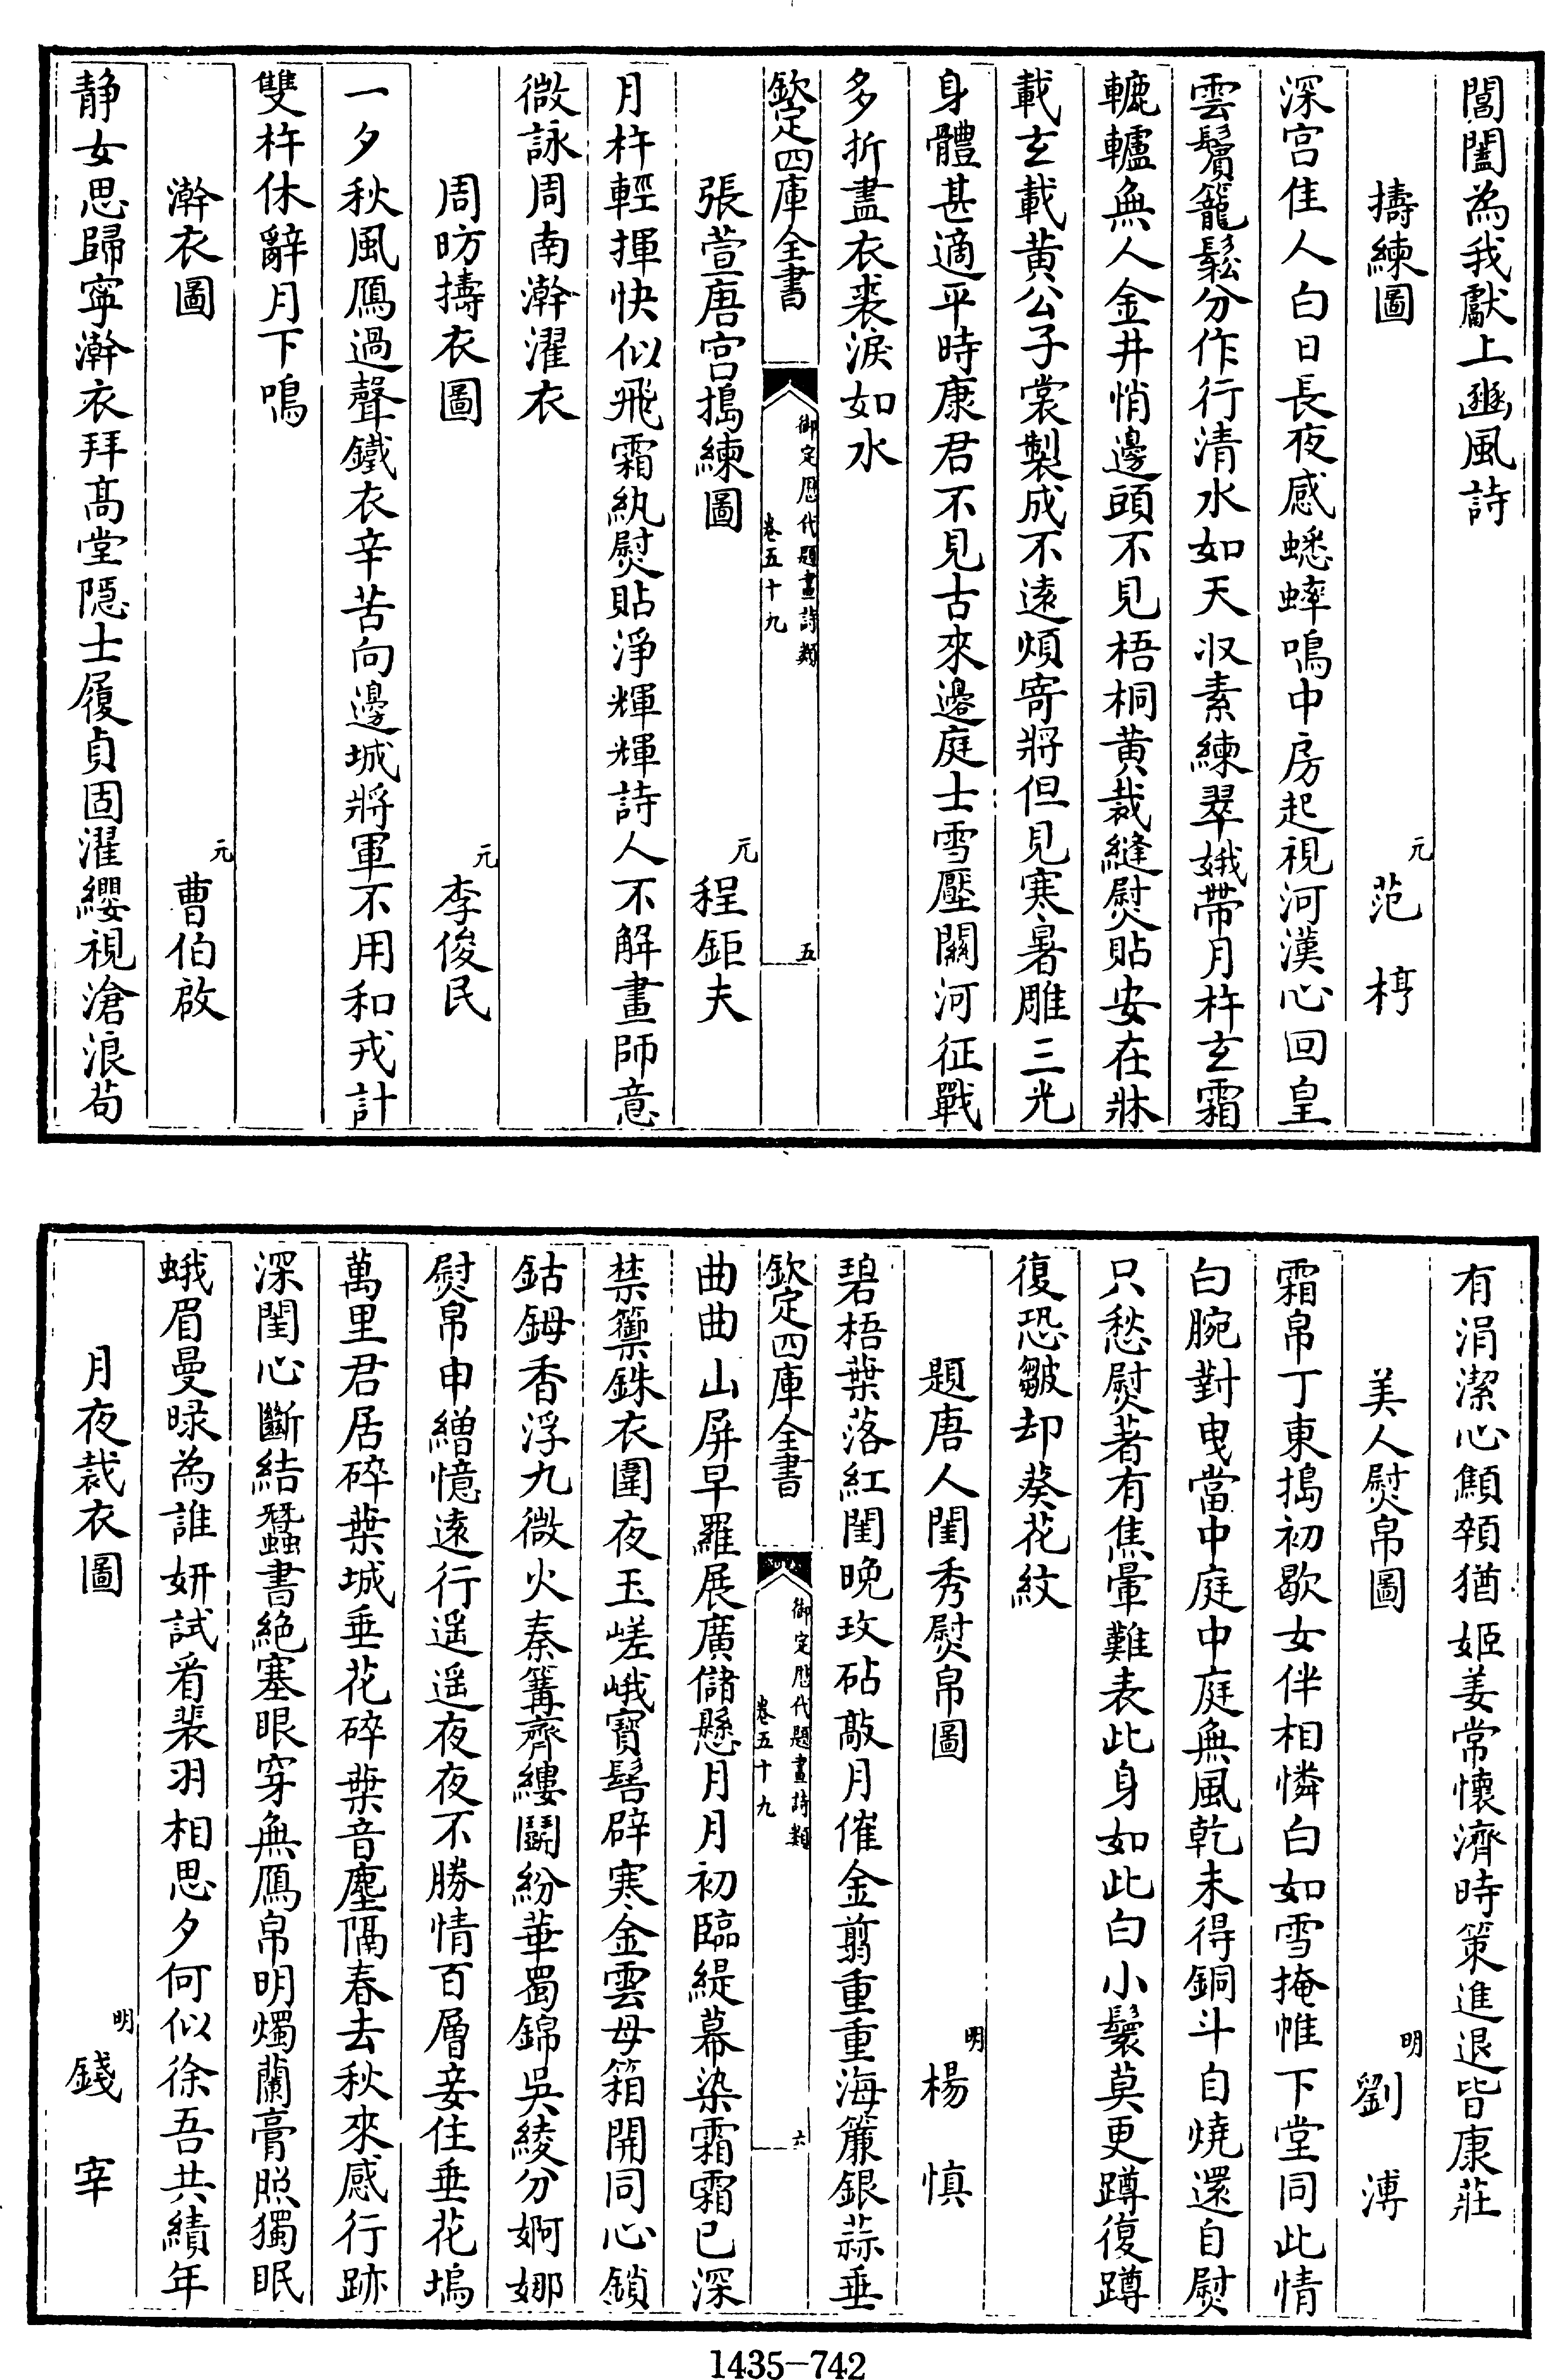 閶闔為我獻上豳風詩
擣練圖
元范梈
深宫佳人白日長夜感蟋蟀鳴中房起視河漢心回皇
雲鬢籠鬆分作行清水如天収素練翠娥帶月杵玄霜
轆轤無人金井悄邊頭不見梧桐黄裁縫熨貼安在牀
載玄載黄公子裳製成不遠煩寄將但見寒暑雕三光
身體甚適平時康君不見古來邊庭士雪壓關河征戰
多折盡衣裘淚如水
欽定四庫全書
御定歴代題畫詩類
卷五十九
五
張萱唐宫搗練圖
元程鉅夫
月杵輕揮快似飛霜紈熨貼淨輝輝詩人不解畫師意
微詠周南澣濯衣
周昉擣衣圖
元李俊民
一夕秋風鴈過聲鐵衣辛苦向邊城將軍不用和戎計
雙杵休辭月下鳴
澣衣圖
元曹伯啟
静女思歸寧澣衣拜髙堂隠士履貞固濯纓視滄浪茍
有涓潔心顦顇猶姬姜常懷濟時策進退皆康莊
美人熨帛圖
明劉溥
霜帛丁東搗初歇女伴相憐白如雪掩帷下堂同此情
白腕對曳當中庭中庭無風乾未得銅斗自燒還自熨
只愁熨著有焦暈難表此身如此白小鬟莫更蹲復蹲
復恐皺却葵花紋
題唐人閨秀熨帛圖
明楊慎
碧梧葉落紅閨晚玫砧敲月催金翦重重海簾銀蒜垂
欽定四庫全書
御定歴代題畫詩類
卷五十九
六
曲曲山屏早羅展廣儲懸月月初臨緹幕染霜霜已深
禁籞銖衣圍夜玉嵯峨寶髻辟寒金雲母箱開同心鎖
鈷鉧香浮九微火秦篝齊縷鬭紛華蜀錦吳綾分婀娜
熨帛申繒憶逺行遥遥夜夜不勝情百層妾住垂花塢
萬里君居碎葉城垂花碎葉音塵隔春去秋來感行跡
深閨心斷結蠶書絶塞眼穿無鴈帛明燭蘭膏照獨眠
蛾眉曼睩為誰妍試看裴羽相思夕何似徐吾共績年
月夜裁衣圖
明錢宰
1435-742